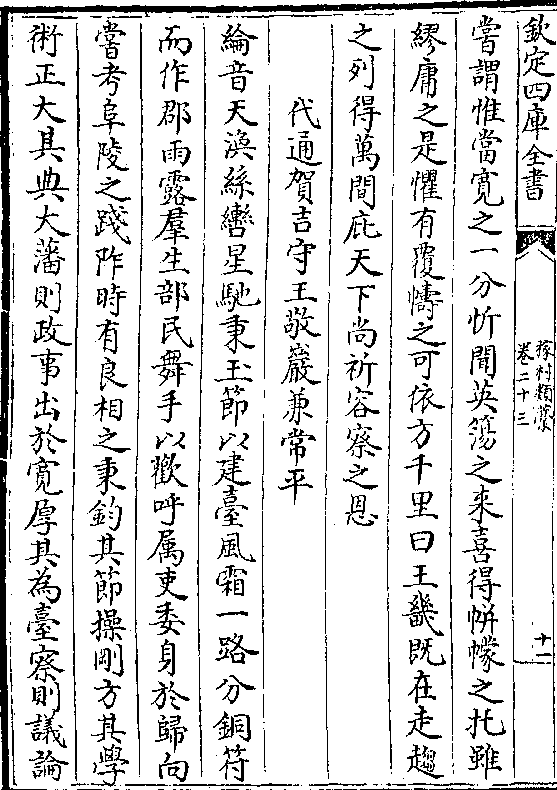 欽定四庫全書
稼村類藁
卷二十三
十一
嘗謂惟當寬之一分忻聞英簜之来喜得帡幪之托雖
繆庸之是懼有覆幬之可依方千里曰王畿既在走趨
之列得萬間庇天下尚祈容察之恩
代通賀吉守王敬巖兼常平
綸音天渙絲轡星馳秉玉節以建臺風霜一路分銅符
而作郡雨露羣生部民舞手以歡呼属吏委身於歸向
嘗考阜陵之踐阼時有良相之秉鈞其節操剛方其學
術正大其典大藩則政事出於寛厚其為臺察則議論